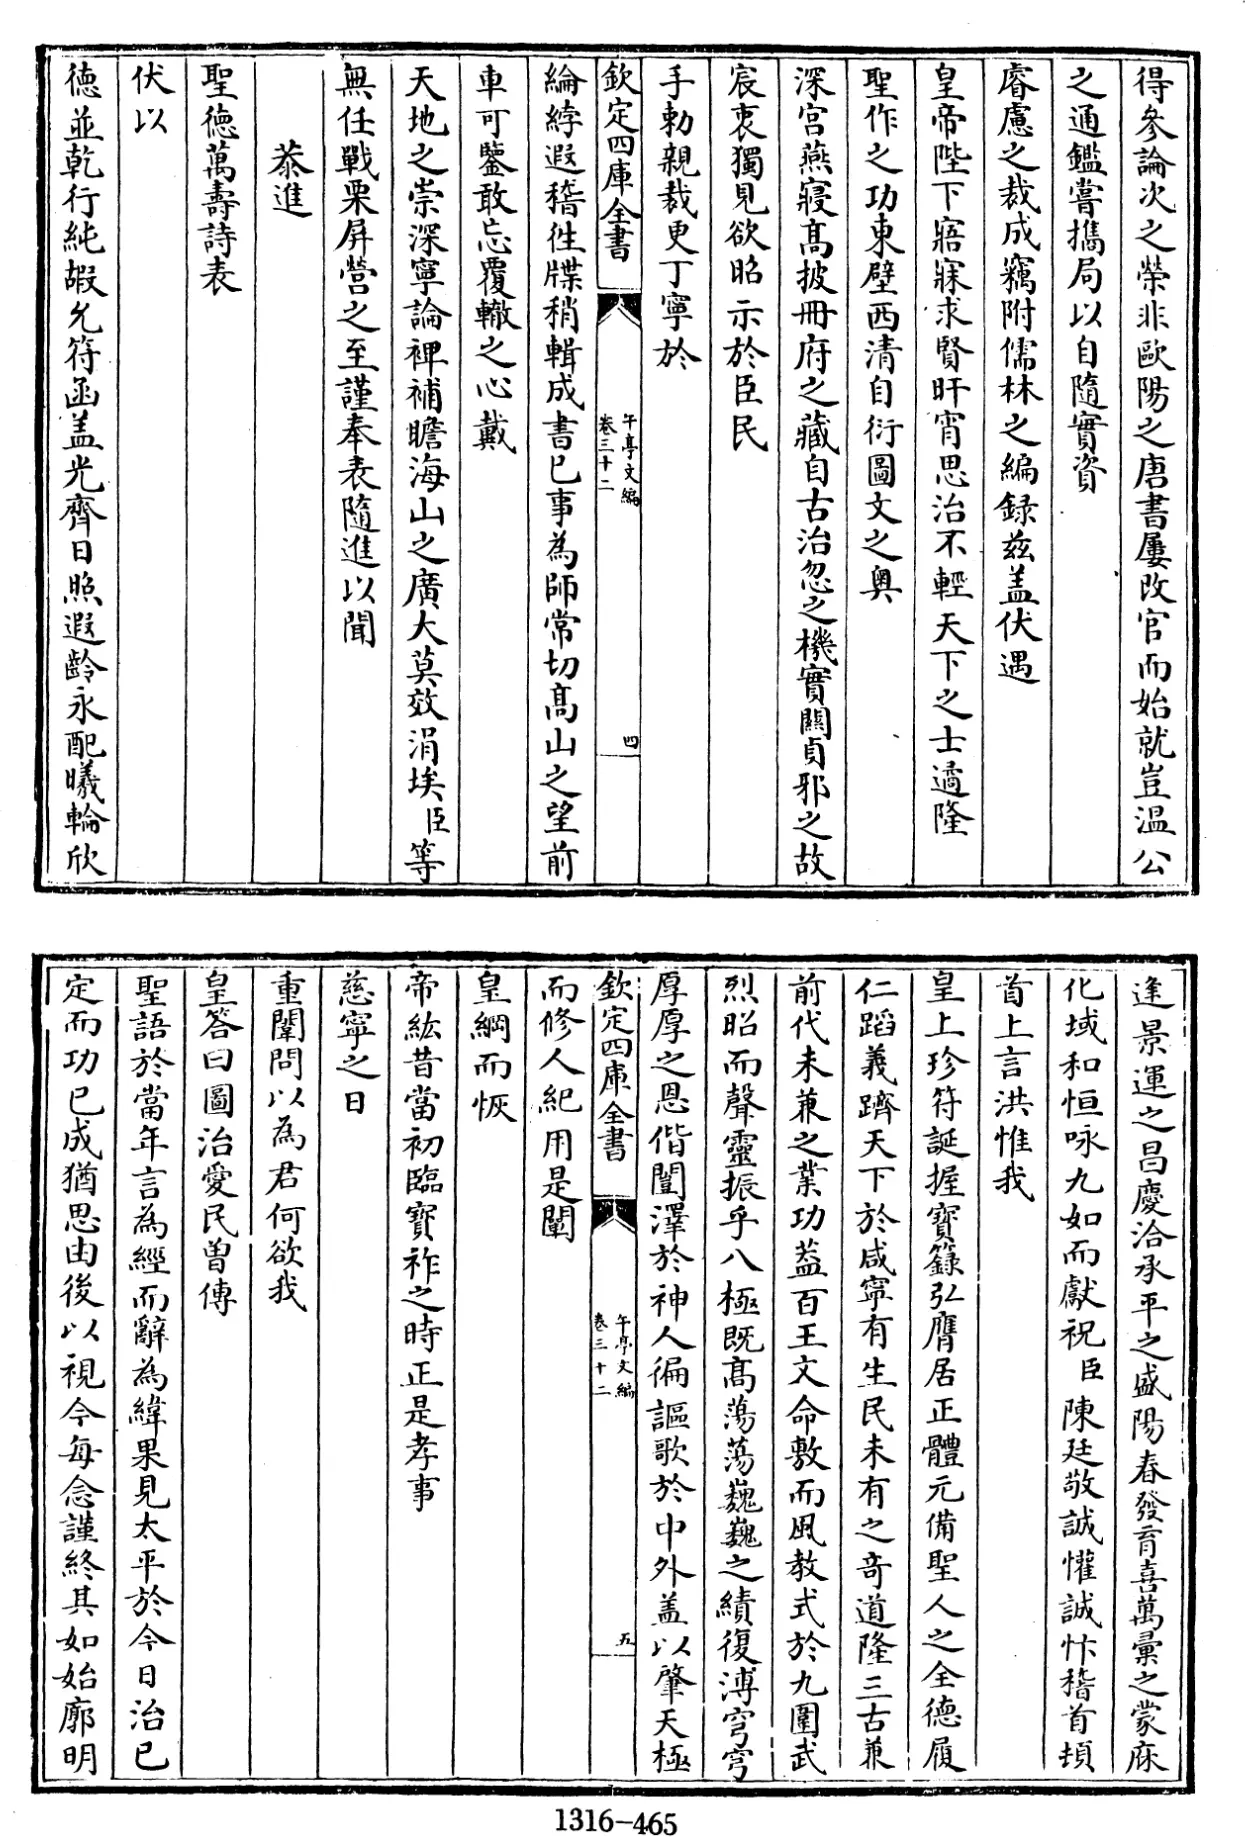 得參論次之榮非歐陽之唐書屢改官而始就豈温公
之通鑑嘗攜局以自隨實資
睿慮之裁成竊附儒林之編録兹盖伏遇
皇帝陛下寤寐求賢旰宵思治不輕天下之士遹隆
聖作之功東壁西清自衍圖文之奥
深宫燕寢髙披冊府之藏自古治忽之機實關貞邪之故
宸衷獨見欲昭示於臣民
手勅親裁更丁寧於
欽定四庫全書
午亭文編
卷三十二
四
綸綍遐稽徃牒稍輯成書已事為師常切髙山之望前
車可鑒敢忘覆轍之心戴
天地之崇深寧論裨補瞻海山之廣大莫效涓埃臣等
無任戰栗屏營之至謹奉表隨進以聞
恭進
聖徳萬壽詩表
伏以
徳並乾行純嘏允符函盖光齊日照遐齡永配曦輪欣
逢景運之昌慶洽承平之盛陽春發育喜萬彚之蒙庥
化域和恒咏九如而獻祝臣陳廷敬誠懽誠忭稽首頓
首上言洪惟我
皇上珍符誕握寳籙弘膺居正體元備聖人之全德履
仁蹈義躋天下於咸寧有生民未有之竒道隆三古兼
前代未兼之業功葢百王文命敷而風教式於九圍武
烈昭而聲靈振乎八極既髙蕩蕩巍巍之績復溥穹穹
厚厚之恩偕闓澤於神人徧謳歌於中外盖以肇天極
欽定四庫全書
午亭文編
卷三十二
五
而修人紀用是闡
皇綱而恢
帝紘昔當初臨寳祚之時正是孝事
慈寧之日
重闈問以為君何欲我
皇答曰圖治愛民曾傳
聖語於當年言為經而辭為緯果見太平於今日治已
定而功已成猶思由後以視今每念謹終其如始廓明
1316-465